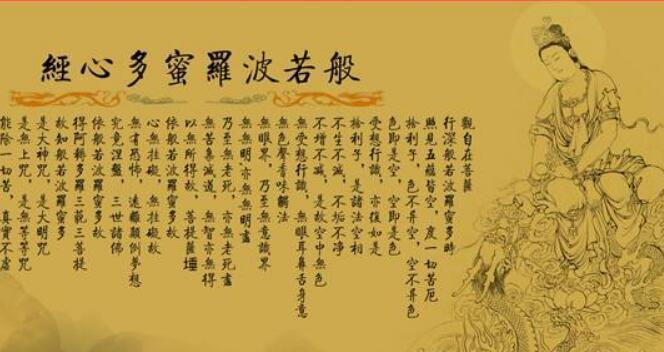 般若波羅蜜多心經
觀自在菩薩
行深般若波羅蜜多時
照見五蘊皆空，度一切苦厄
捨利子，色不异空，空不异色
色即是空，空即是色
受想行識，亦復如是
捨利子，是諸法空相
不生不滅，不垢不净
不增不減，是故空中無色
無受想行識，無眼耳鼻舌身意
無色聲香味觸法
無眼界，乃至無意識界
無無明，亦無無明盡
乃至無老死，亦無老死盡
無苦集滅道，無智亦無得
以無所得故，菩提薩埵
依般若波羅蜜多故
心無挂礙，無挂礙故
無有恐怖，遠離顛倒夢想
究竟涅盤，三世諸佛
依般若波羅蜜多故
得阿耨多羅三藐三菩提
故知般若波羅蜜多
是大神咒，是大明咒
是無上咒，是無等等咒
能除一切苦，真實不虛